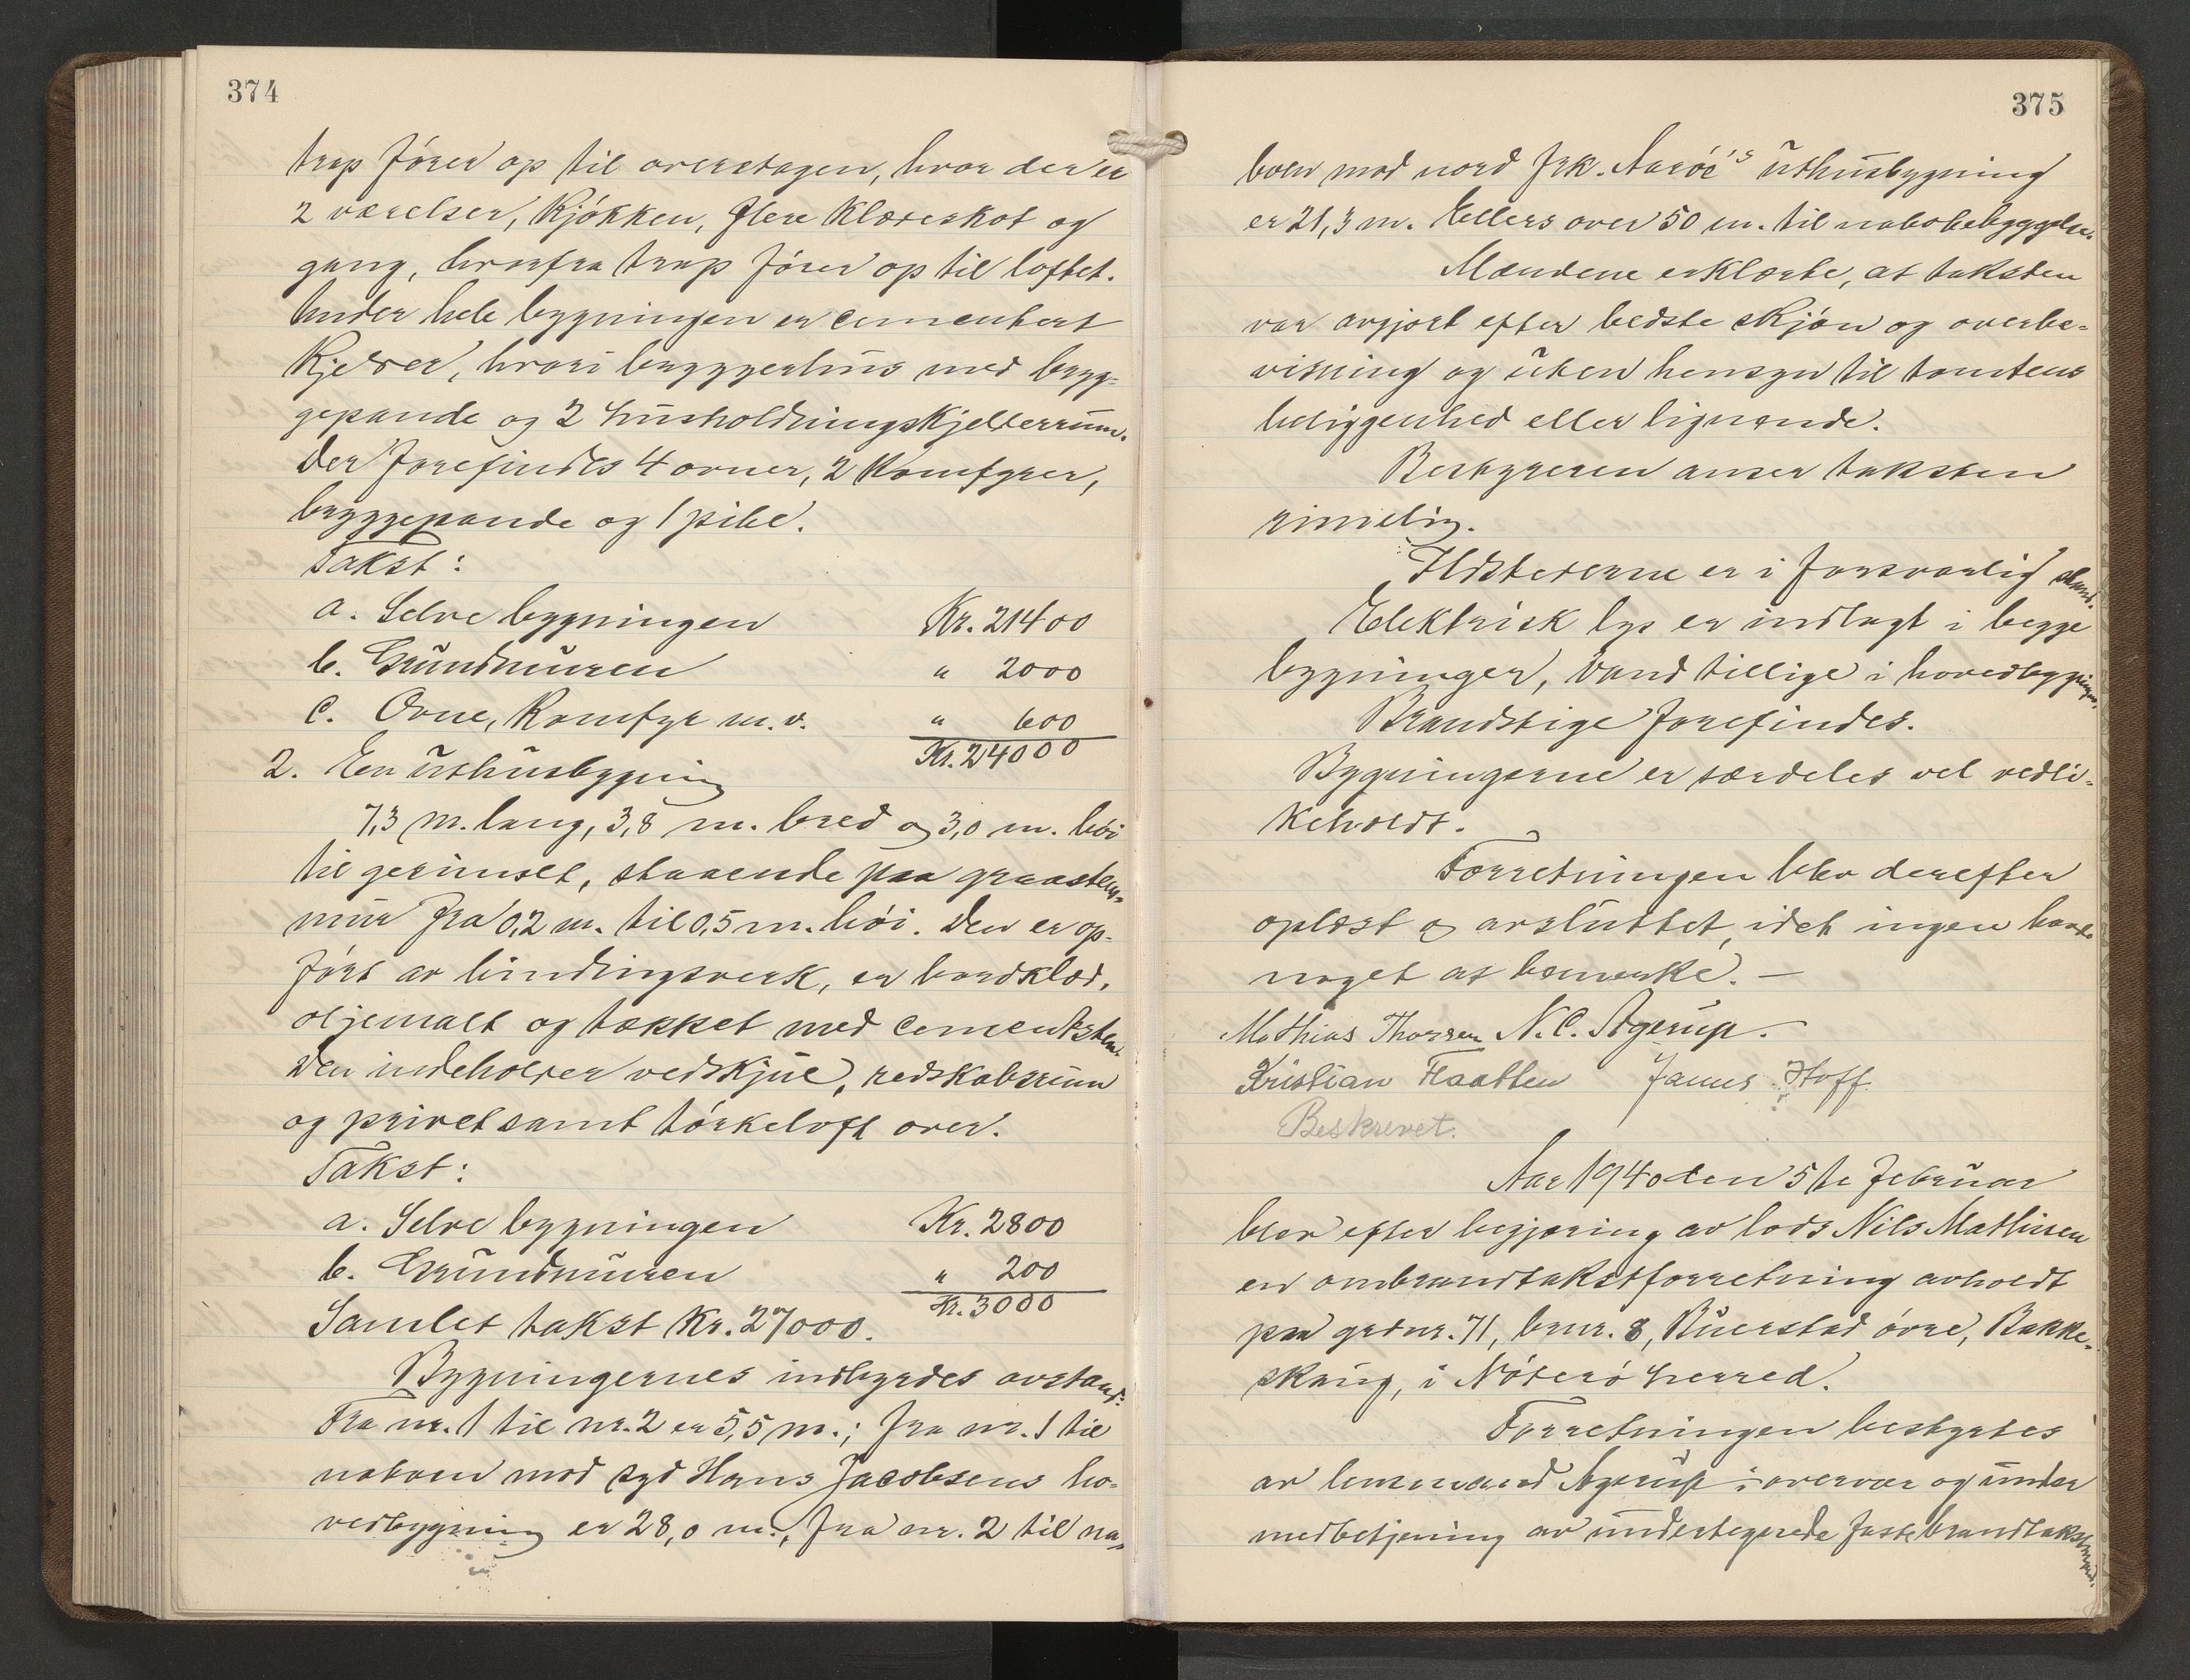 374
trap fører op til overetagen, hvor der er
2 værelser, kjøkken, flere klæreskot og
gang, hvorfra trap fører op til loftet.
Under hele bygningen er cementert
kjelder, hvori bryggerhus med bryg-
gepande og 2 husholdningskjelderrum.
Der forefindes 4 ovner, 2 komfyrer,
bryggepande og 1 pibe.
Takst:
a. Selve bygningen Kr. 21400
b. Grundmuren " 2000
c. Ovne, Komfyr m.v. " 600
Kr. 24000
2. En uthusbygning
7,3 m. lang, 3,8 m. bred og 3,0 m. høi
til gesimset, staaende paa graastens-
mur fra 0,2 m. til 0,5 m. høi. Den er op-
ført av bindingsverk, er bordklæd,
oljemalt og tækket med cementsten.
Den indeholder vedskjul, redskabsrum
og privet samt tørkeloft over.
Takst:
a. Selve bygningen Kr. 2800
b. Grundmuren " 200
Kr. 3000
Samlet takst Kr. 27000.
Bygningernes indbyrdes avstand:
Fra nr. 1 til nr. 2 er 5,5 m.; fra nr. 1 til
naboen mod syd Hans Jacobsens ho-
vedbygning er 28,0 m., fra nr. 2 til na-
375
boen mod nord Frk. Aarøe's uthusbygning
er 21,3 m. Ellers over 50 m. til nabobebyggelse.
Mændene erklærte, at taksten
var avgjort efter bedste skjøn og overbe-
visning og uten hensyn til tomtens
beliggenhed eller lignende.
Bestyreren anser taksten
rimelig.
Ildstederne er i forsvarlig stand.
Elektrisk lys er indlagt i begge
bygninger, vand tillige i hovedbygningen.
Brandstige forefindes.
Bygningerne er særdeles vel vedli-
keholdt.
Forretningen blev derefter
oplæst og avsluttet, idet ingen havde
noget at bemerke. —
Mathias Thorsen N. C. Agerup.
Kristian Flaatten James Hoff
Beskrevet.
Aar 1940 den 5te Februar
blev efter begjæring av lods Nils Mathisen
en ombrandtakstforretning avholdt
paa grdnr. 71, brnr. 8, Buerstad øvre, Bakke-
skaug, i Nøterø herred.
Forretningen bestyrtes
av lensmand Agerup i overvær og under
medbetjening av undertegnede faste brandtakstmænd.